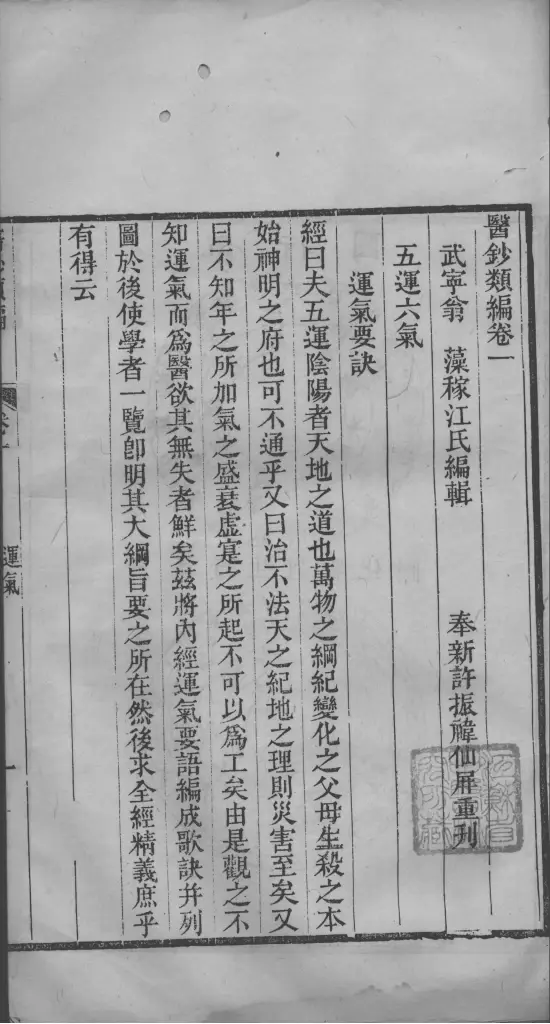 醫鈔類編卷一
武寧翁 藻稼江氏編輯 奉新許振禕仙屏重刋
五運六氣
運氣要訣
經曰夫五運陰陽者天地之道也萬物之綱紀變化之父母生殺之本
始神明之府也可不通乎又曰治不法天之紀地之理則災害至矣又
曰不知年之所加氣之盛衰虛寔之所起不可以爲工矣由是觀之不
知運氣而爲醫欲其無失者鮮矣茲將內經運氣要語編成歌訣幷列
圖於後使學者一覽卽明其大綱旨要之所在然後求全經精義庶乎
有得云
運氣
一